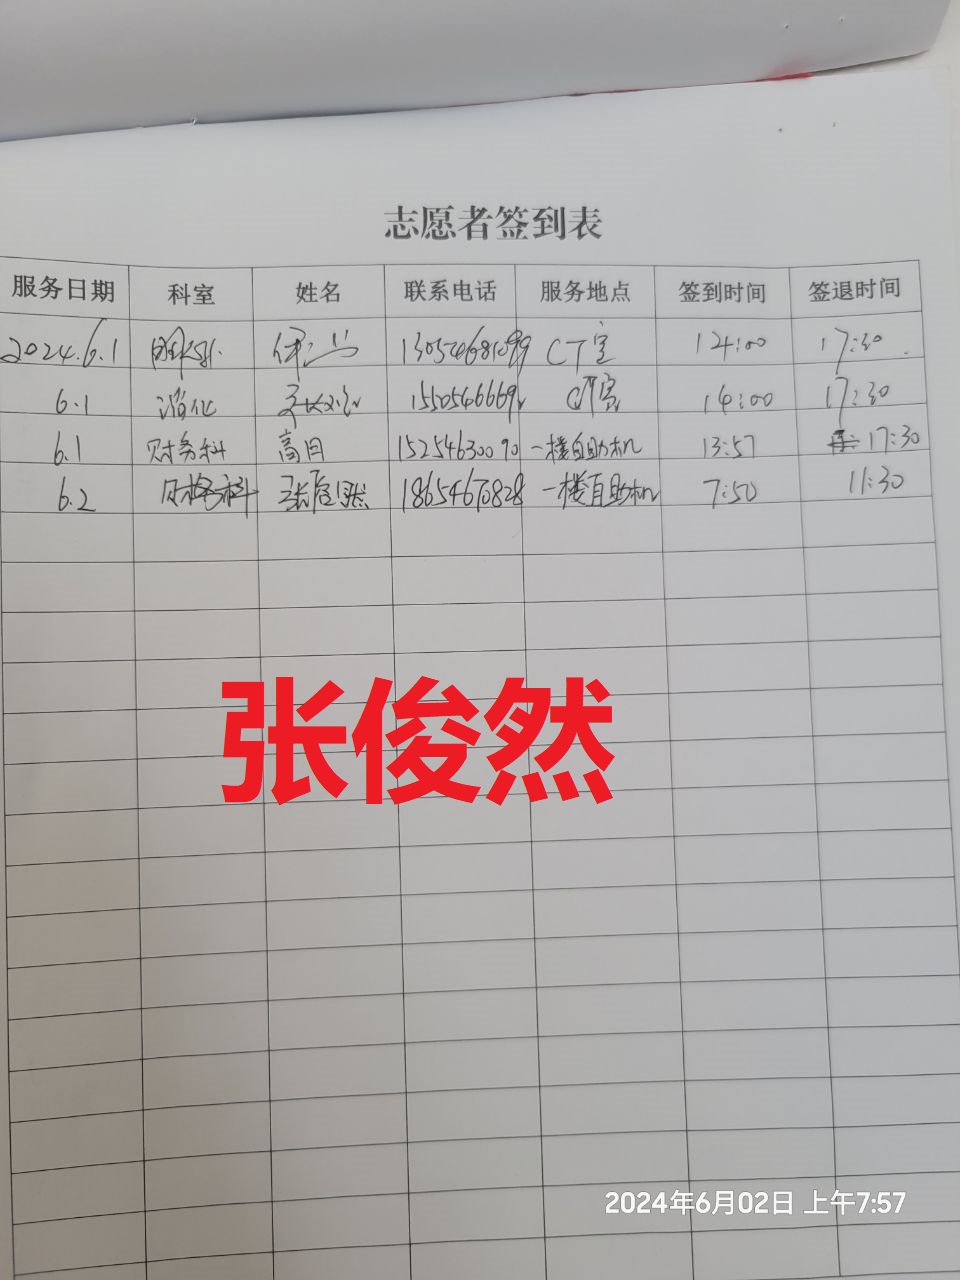 志愿者签到表
服务日期 科室 姓名 联系电话 服务地点 签到时间 签退时间
2024.6.1 CT室 14:00 17:30
6.1 消化 CT室 14:00 17:30
6.1 财务科 高 15254630090 一楼自助机 13:57 17:30
6.2 科 张俊然 18654670828 一楼自助机 7:50 11:30
张俊然
2024年6月02日 上午7:57